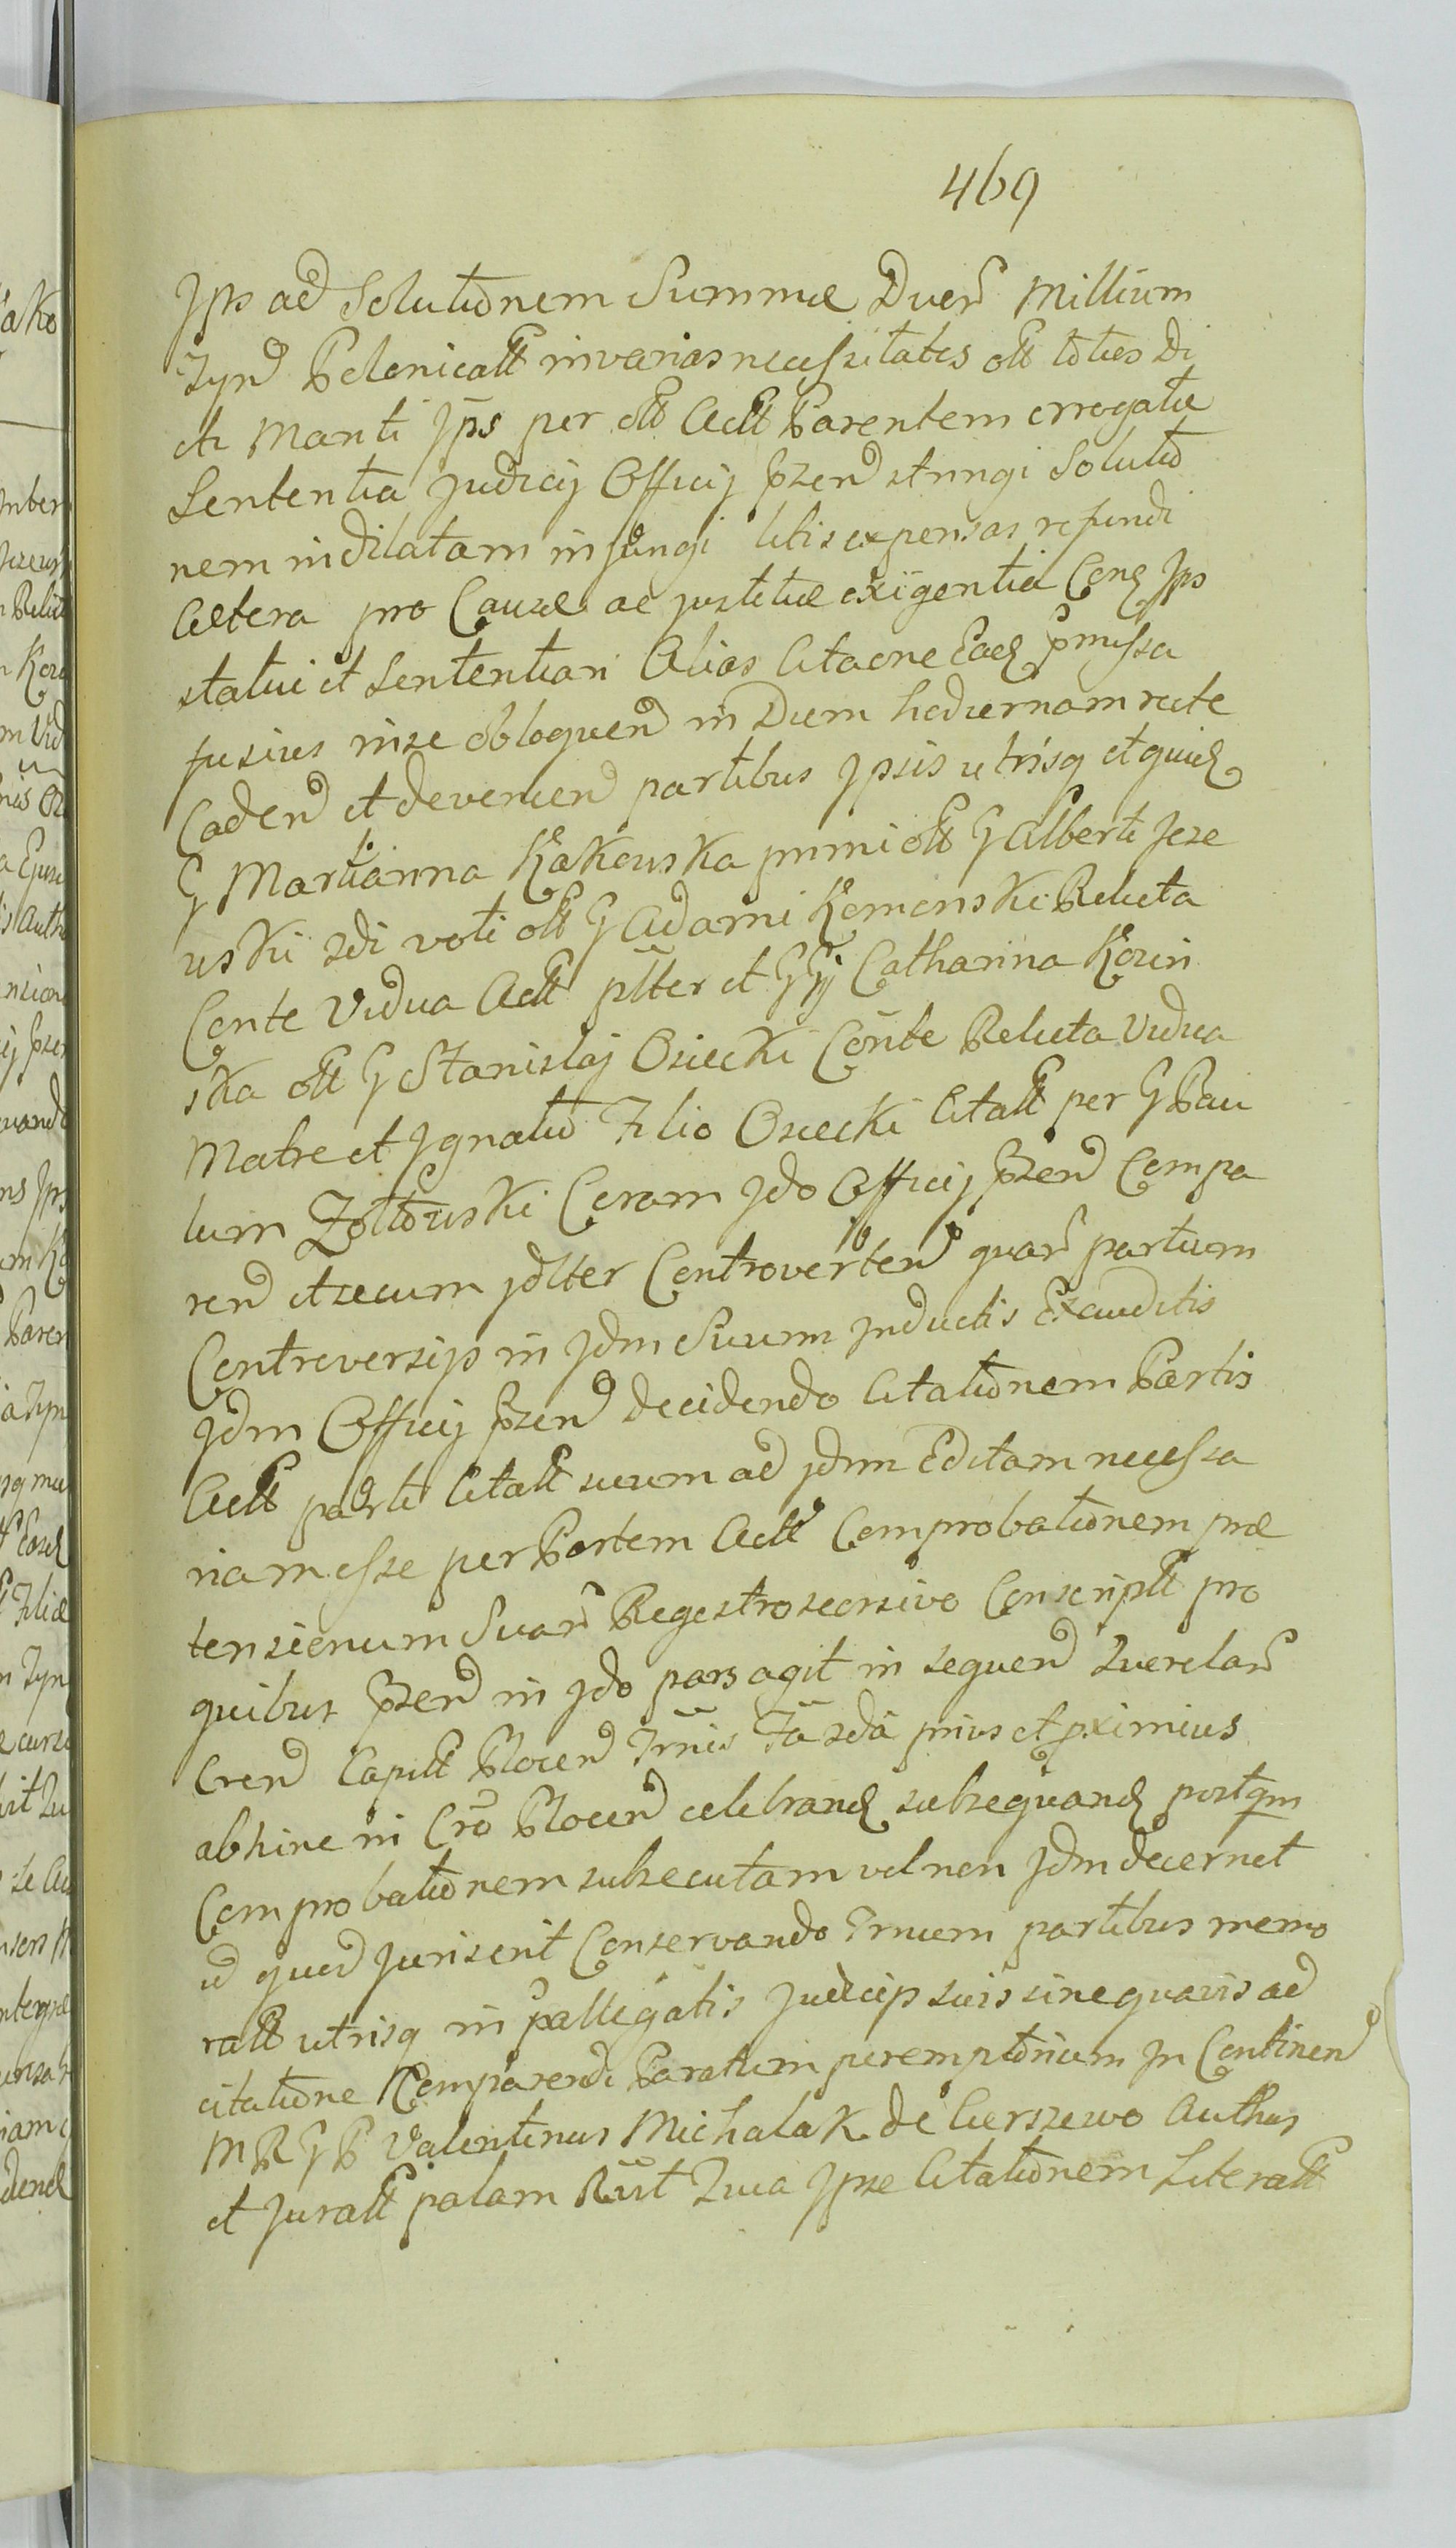 469
Jps ad Solutionem Summae Duar Millium
Zyn Polonicall in varias necessitates oll toties Di
cti Mariti Jps per oll Actt Parentem errogatae
Sententia Judicij Officij przen stringi Solutio
nem indilatam injungi litis expensas refundi
Caetera pro Causae ac justitiae exigentia Conq Jps
statui et Sententiari Alias Citaone Eadq pmissa
fusius in se obloquen in Diem hodiernam recte
Caden et devenien partibus Jpsis utrisq et quidq
G Marianna Kakowska primi oll G Alberti Jeze
wski 2di voti oll G Adami Komenski Relicta
Conte Vidua Actt plter et GG Catharina Kozin
ska oll G Stanislaj Osiecki Conte Relicta Vidua
Matre et Ignatio Filio Osiecki Citatt per G Pau
lum Zoltowski Coram Jdo Officij przen Compa
ren et secum jdlter Controverten quar partium
Controversijs in Jdm Suum inductis Exauditis
Jdm Officij przen decidendo Citationem Partis
Actt parti Citatt suum ad jdm Editam necessa
riam esse per Partem Actt Comprobationem prae
tensionum Suar Regestro seorsivo Conscriptt pro
quibus przen in Jdo pars agit in sequen Querelar
Cren Capitt Plocen Trnis Fa 2da prius et pximius
abhinc in Cro Plocen celebrandq subsequandq postqm
Comprobationem subsecutam vel non Jdm decernet
id quod Juris erit Conservando Trnum partibus memo
ratt utrisq in pallegatis Judicijs suis sine quavis ad
citatione Comparendi Paratum peremptorium In Continen
M R G P Valentinus Michalak de Cierszewo Authus
et Juratt palam Rtt Quia Jpse Citationem Literatt